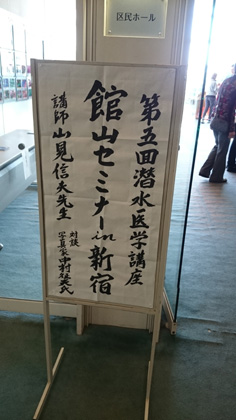 区民ホール
第五回潜水医学講座
館山セミナーin新宿
講師 山見信夫先生
対談
写真家 中村征夫氏